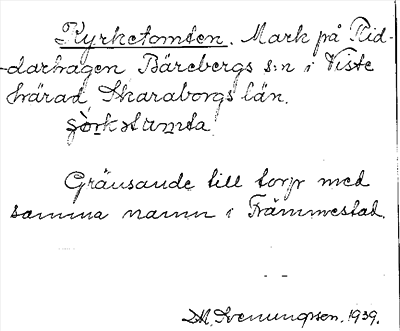 Kyrketomten. Mark på Rid-
-darhagen, Bärebergs s:n i Viste
härad, Skaraborgs län.
Gränsande till torp med
samma namn i Främmestad.
Svenungson. 1939.